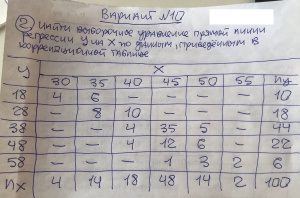 ВАРИАНТ №10
2) Найти выборочное уравнение прямой линии
регрессии Y на X по данным, приведённым в
корреляционной таблице
y X
30 35 40 45 50 55 ny
18 4 6 — — — — 10
28 — 8 10 — — — 18
38 — — 4 35 5 — 44
48 — — 4 12 6 — 22
58 — — — 1 3 2 6
nx 4 14 18 48 14 2 100